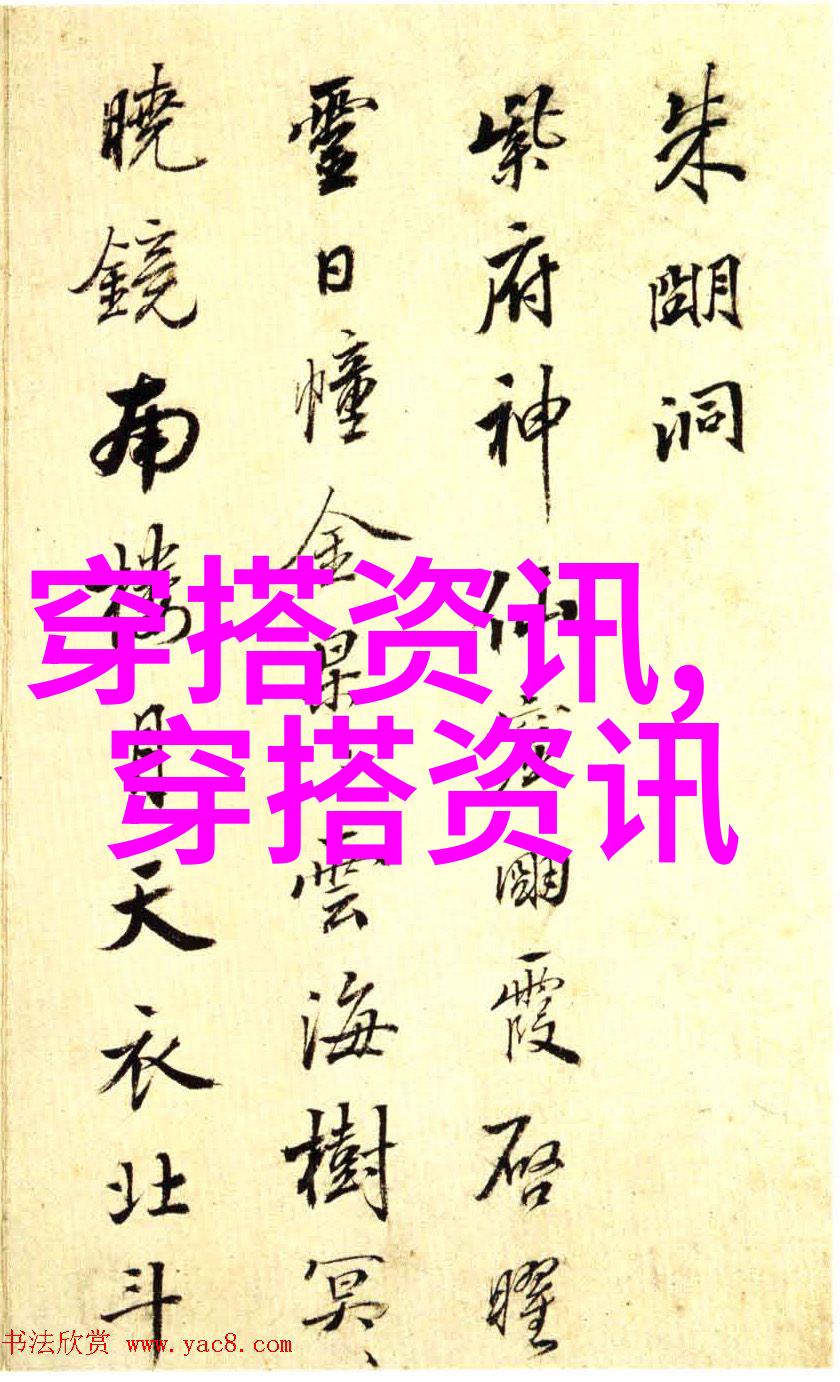 朱朙洞
紫府神仙朙霞启曜
靈日幢金杲、雲海樹冥、
曉鏡南樓月天衣北斗
穿搭资讯,
穿搭资讯
书法欣赏 www.yac8.com